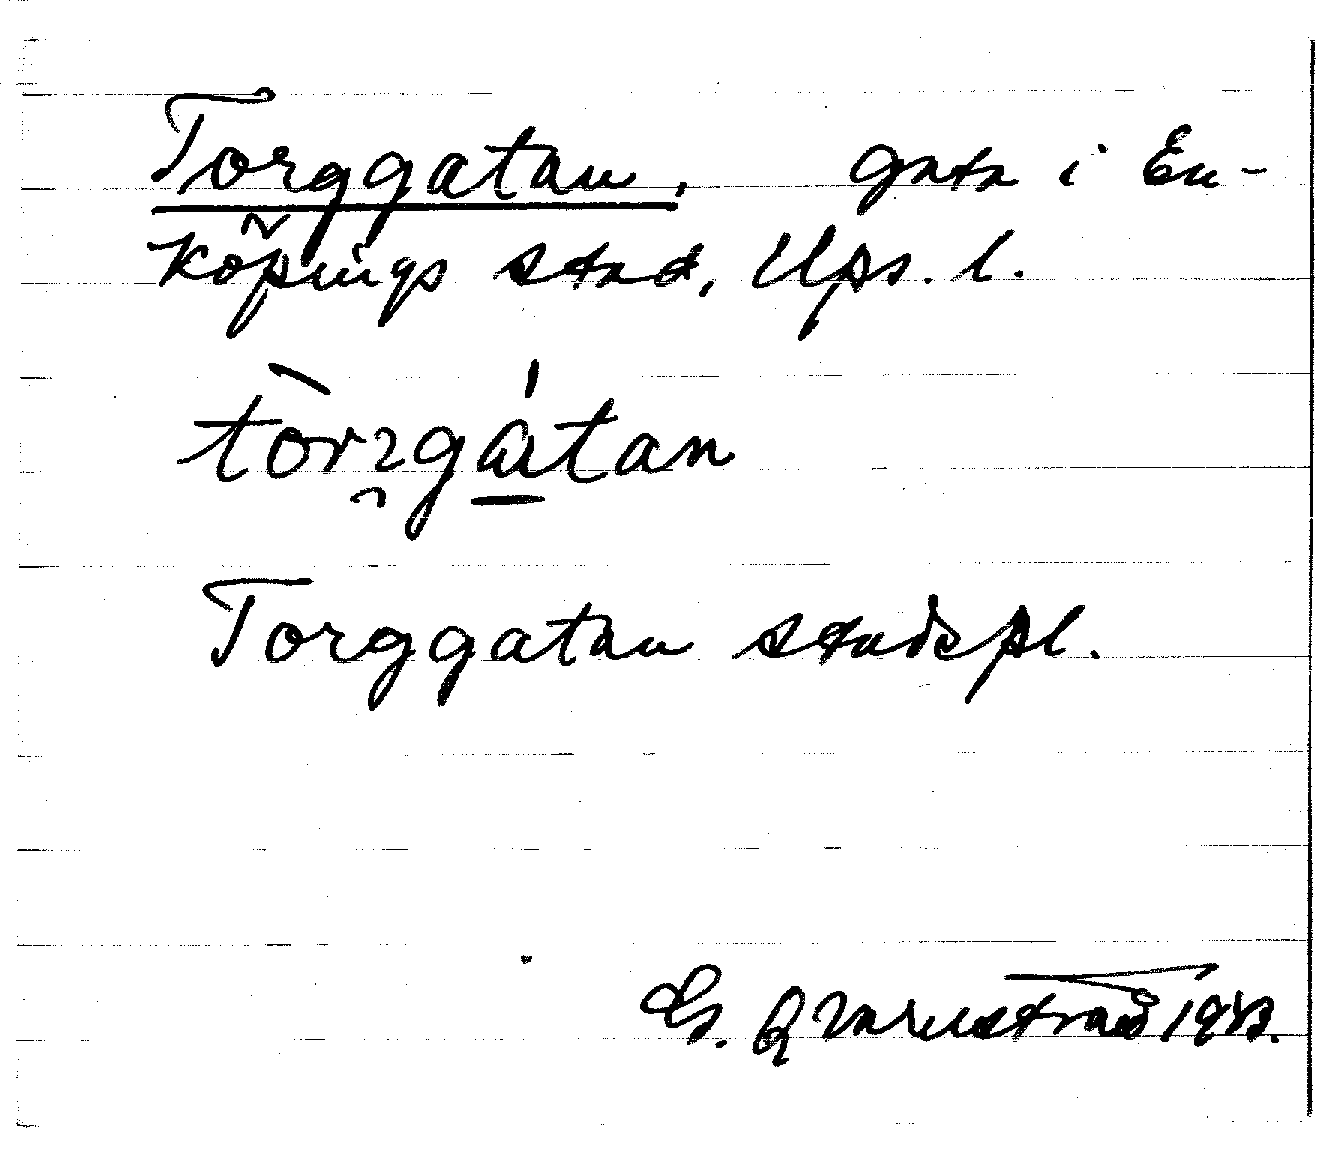 Torggatan, gata i En-
köpings stad, Ups. l.
tòrgátan
Torggatan stadspl.
G. Qvarnström 1943.